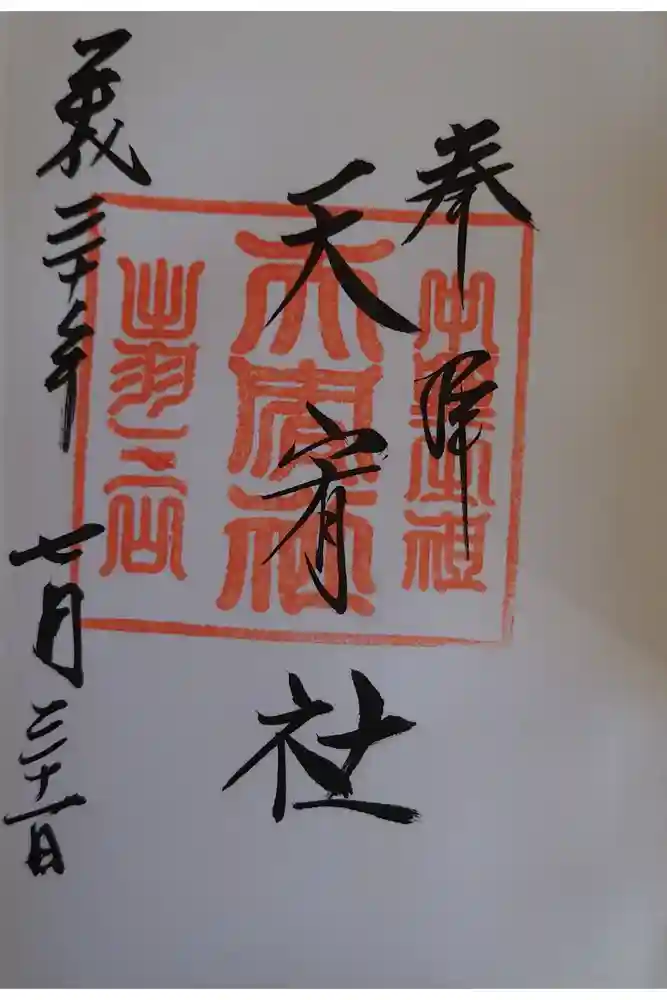 奉拝
天宥社
平成三十年七月三十一日
天宥社
出羽三山